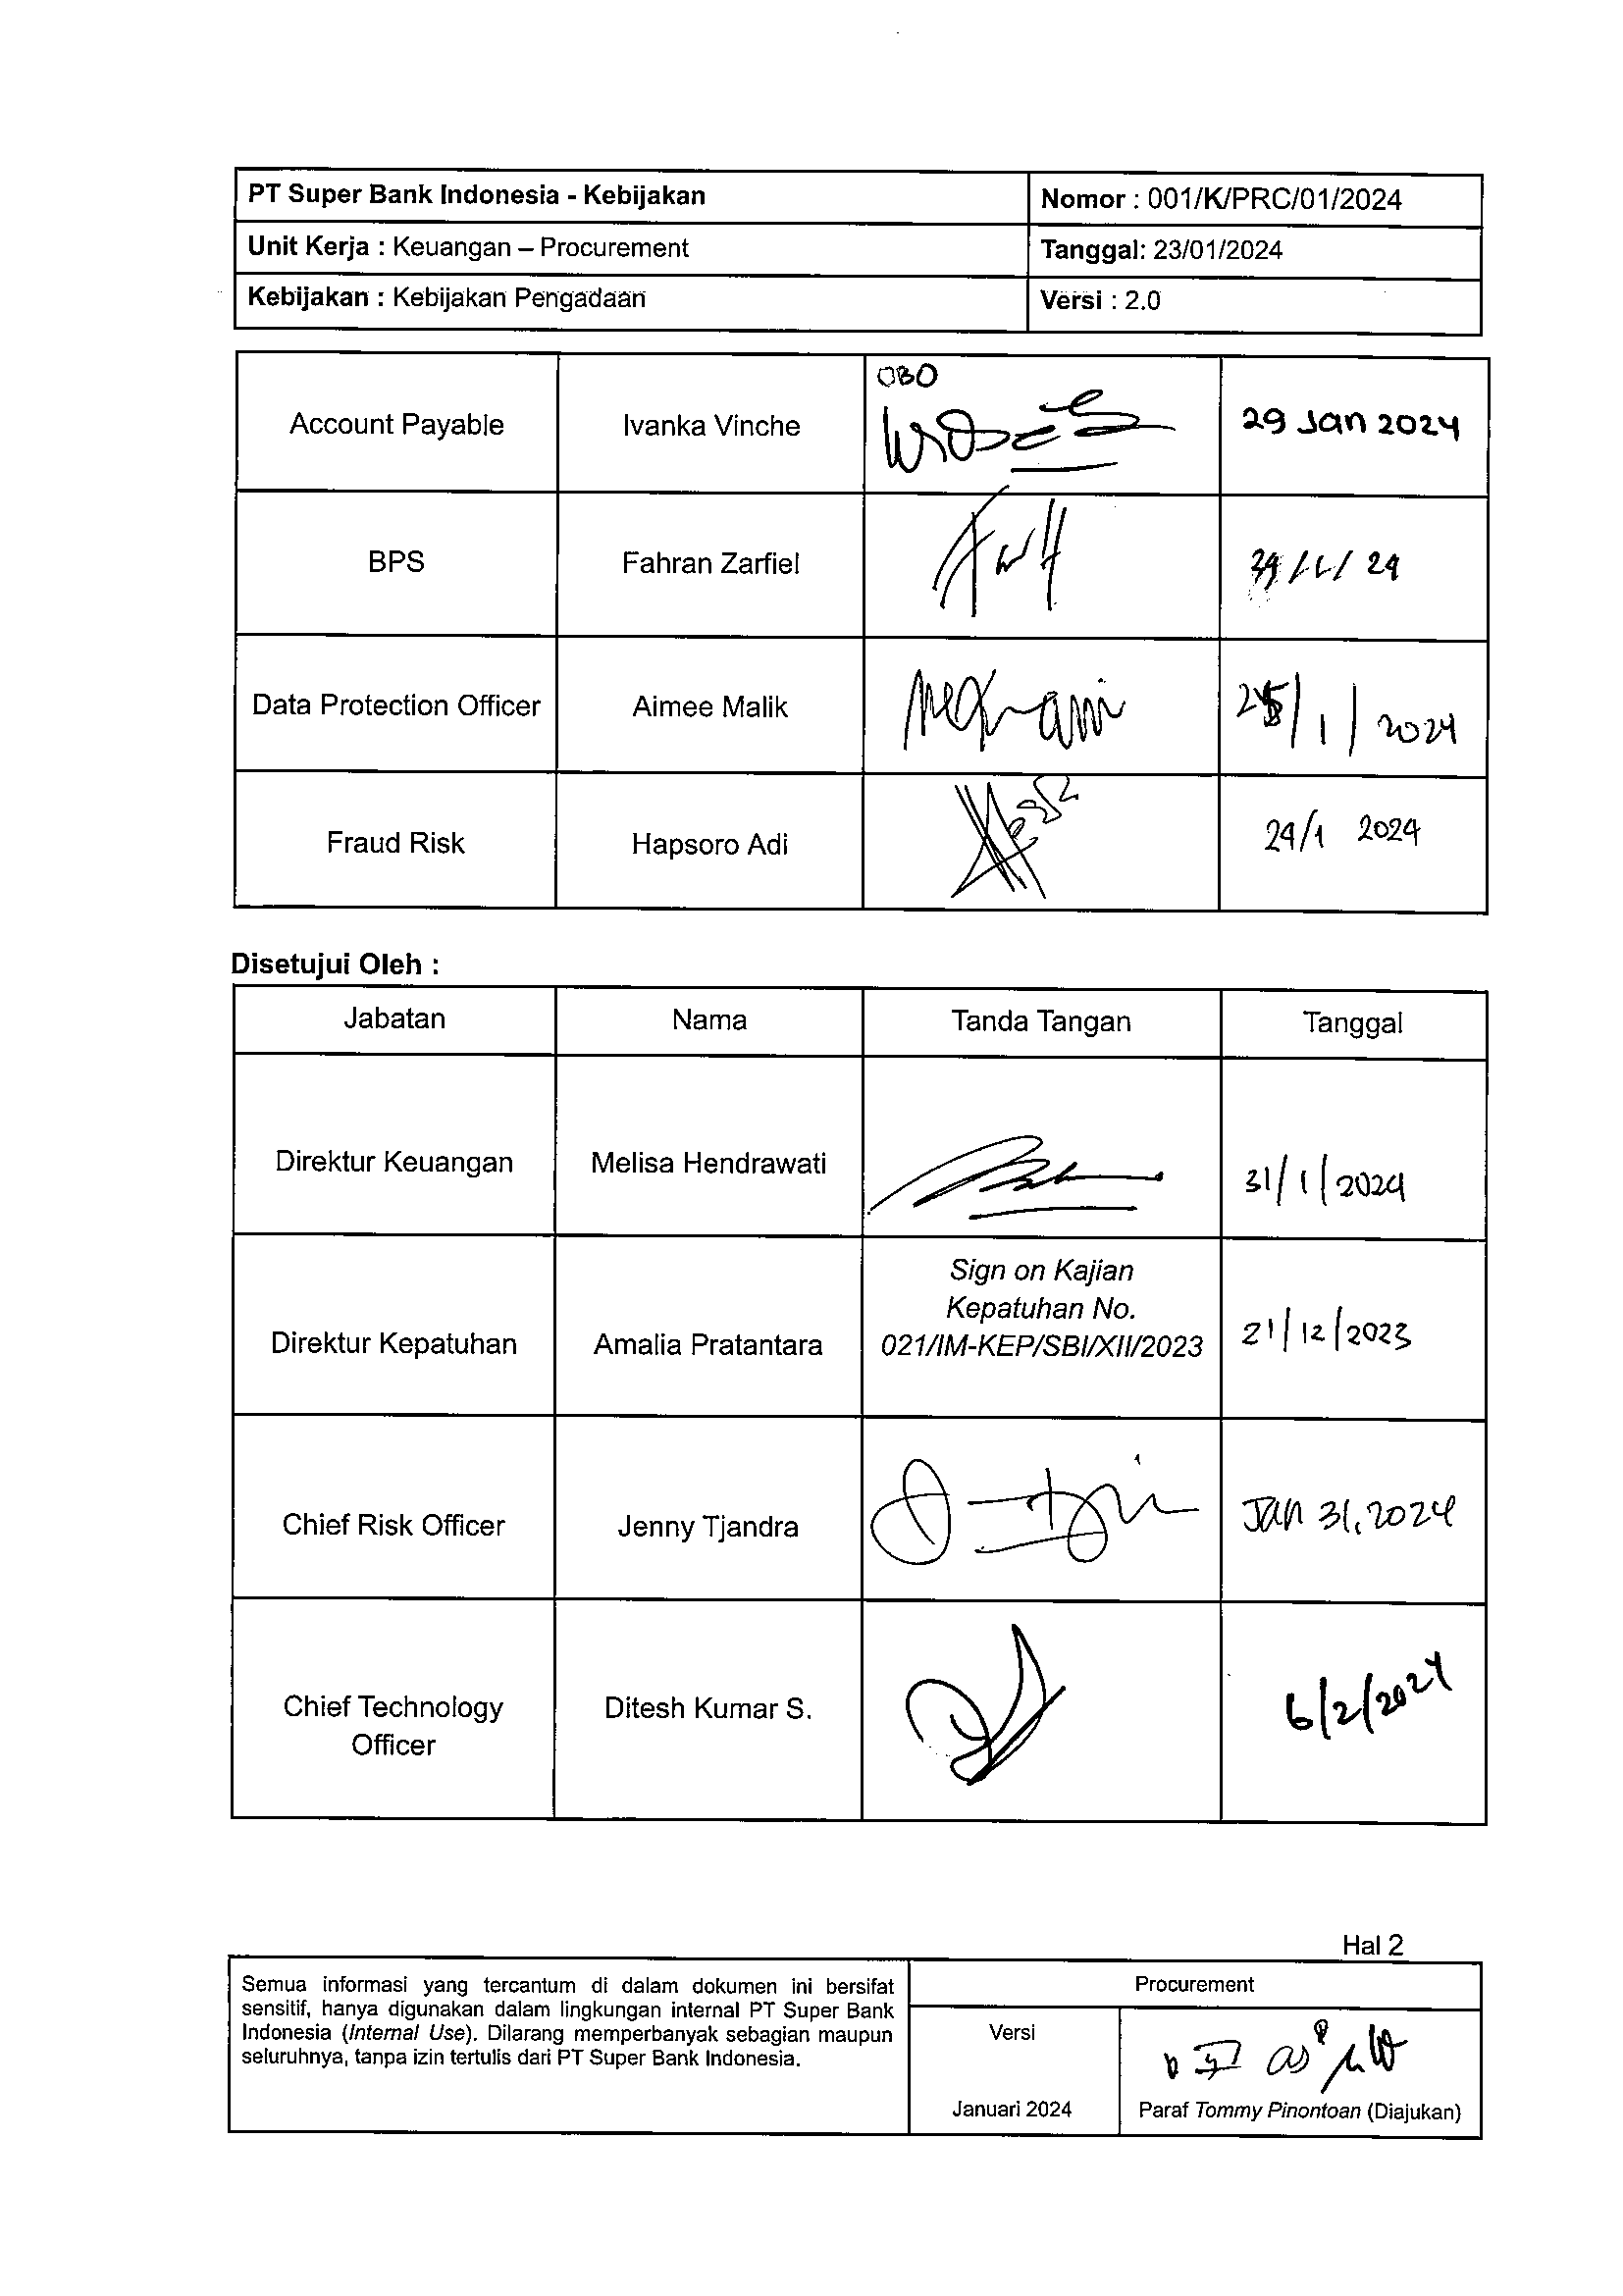 PT Super Bank Indonesia - Kebijakan
Nomor : 001/K/PRC/01/2024
Unit Kerja : Keuangan – Procurement
Tanggal: 23/01/2024
Kebijakan : Kebijakan Pengadaan
Versi : 2.0
OBO
Account Payable
Ivanka Vinche
29 Jan 2024
BPS
Fahran Zarfiel
Data Protection Officer
Aimee Malik
/1/2024
Fraud Risk
Hapsoro Adi
29/1 2024
Disetujui Oleh :
Jabatan
Nama
Tanda Tangan
Tanggal
Direktur Keuangan
Melisa Hendrawati
31/1/2024
Direktur Kepatuhan
Amalia Pratantara
Sign on Kajian
Kepatuhan No.
021/IM-KEP/SBI/XII/2023
21/12/2023
Chief Risk Officer
Jenny Tjandra
JAN 31, 2024
Chief Technology
Officer
Ditesh Kumar S.
6/2/2024
Hal 2
Semua informasi yang tercantum di dalam dokumen ini bersifat
sensitif, hanya digunakan dalam lingkungan internal PT Super Bank
Indonesia (Internal Use). Dilarang memperbanyak sebagian maupun
seluruhnya, tanpa izin tertulis dari PT Super Bank Indonesia.
Procurement
Versi
Januari 2024
Paraf Tommy Pinontoan (Diajukan)